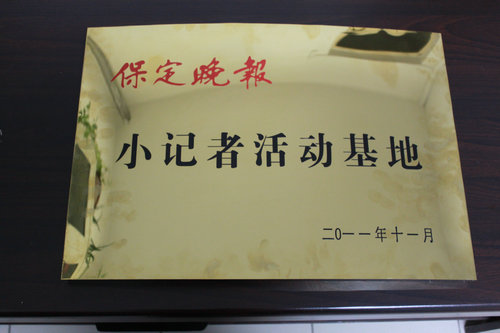 保定晚報
小记者活动基地
二0一一年十一月